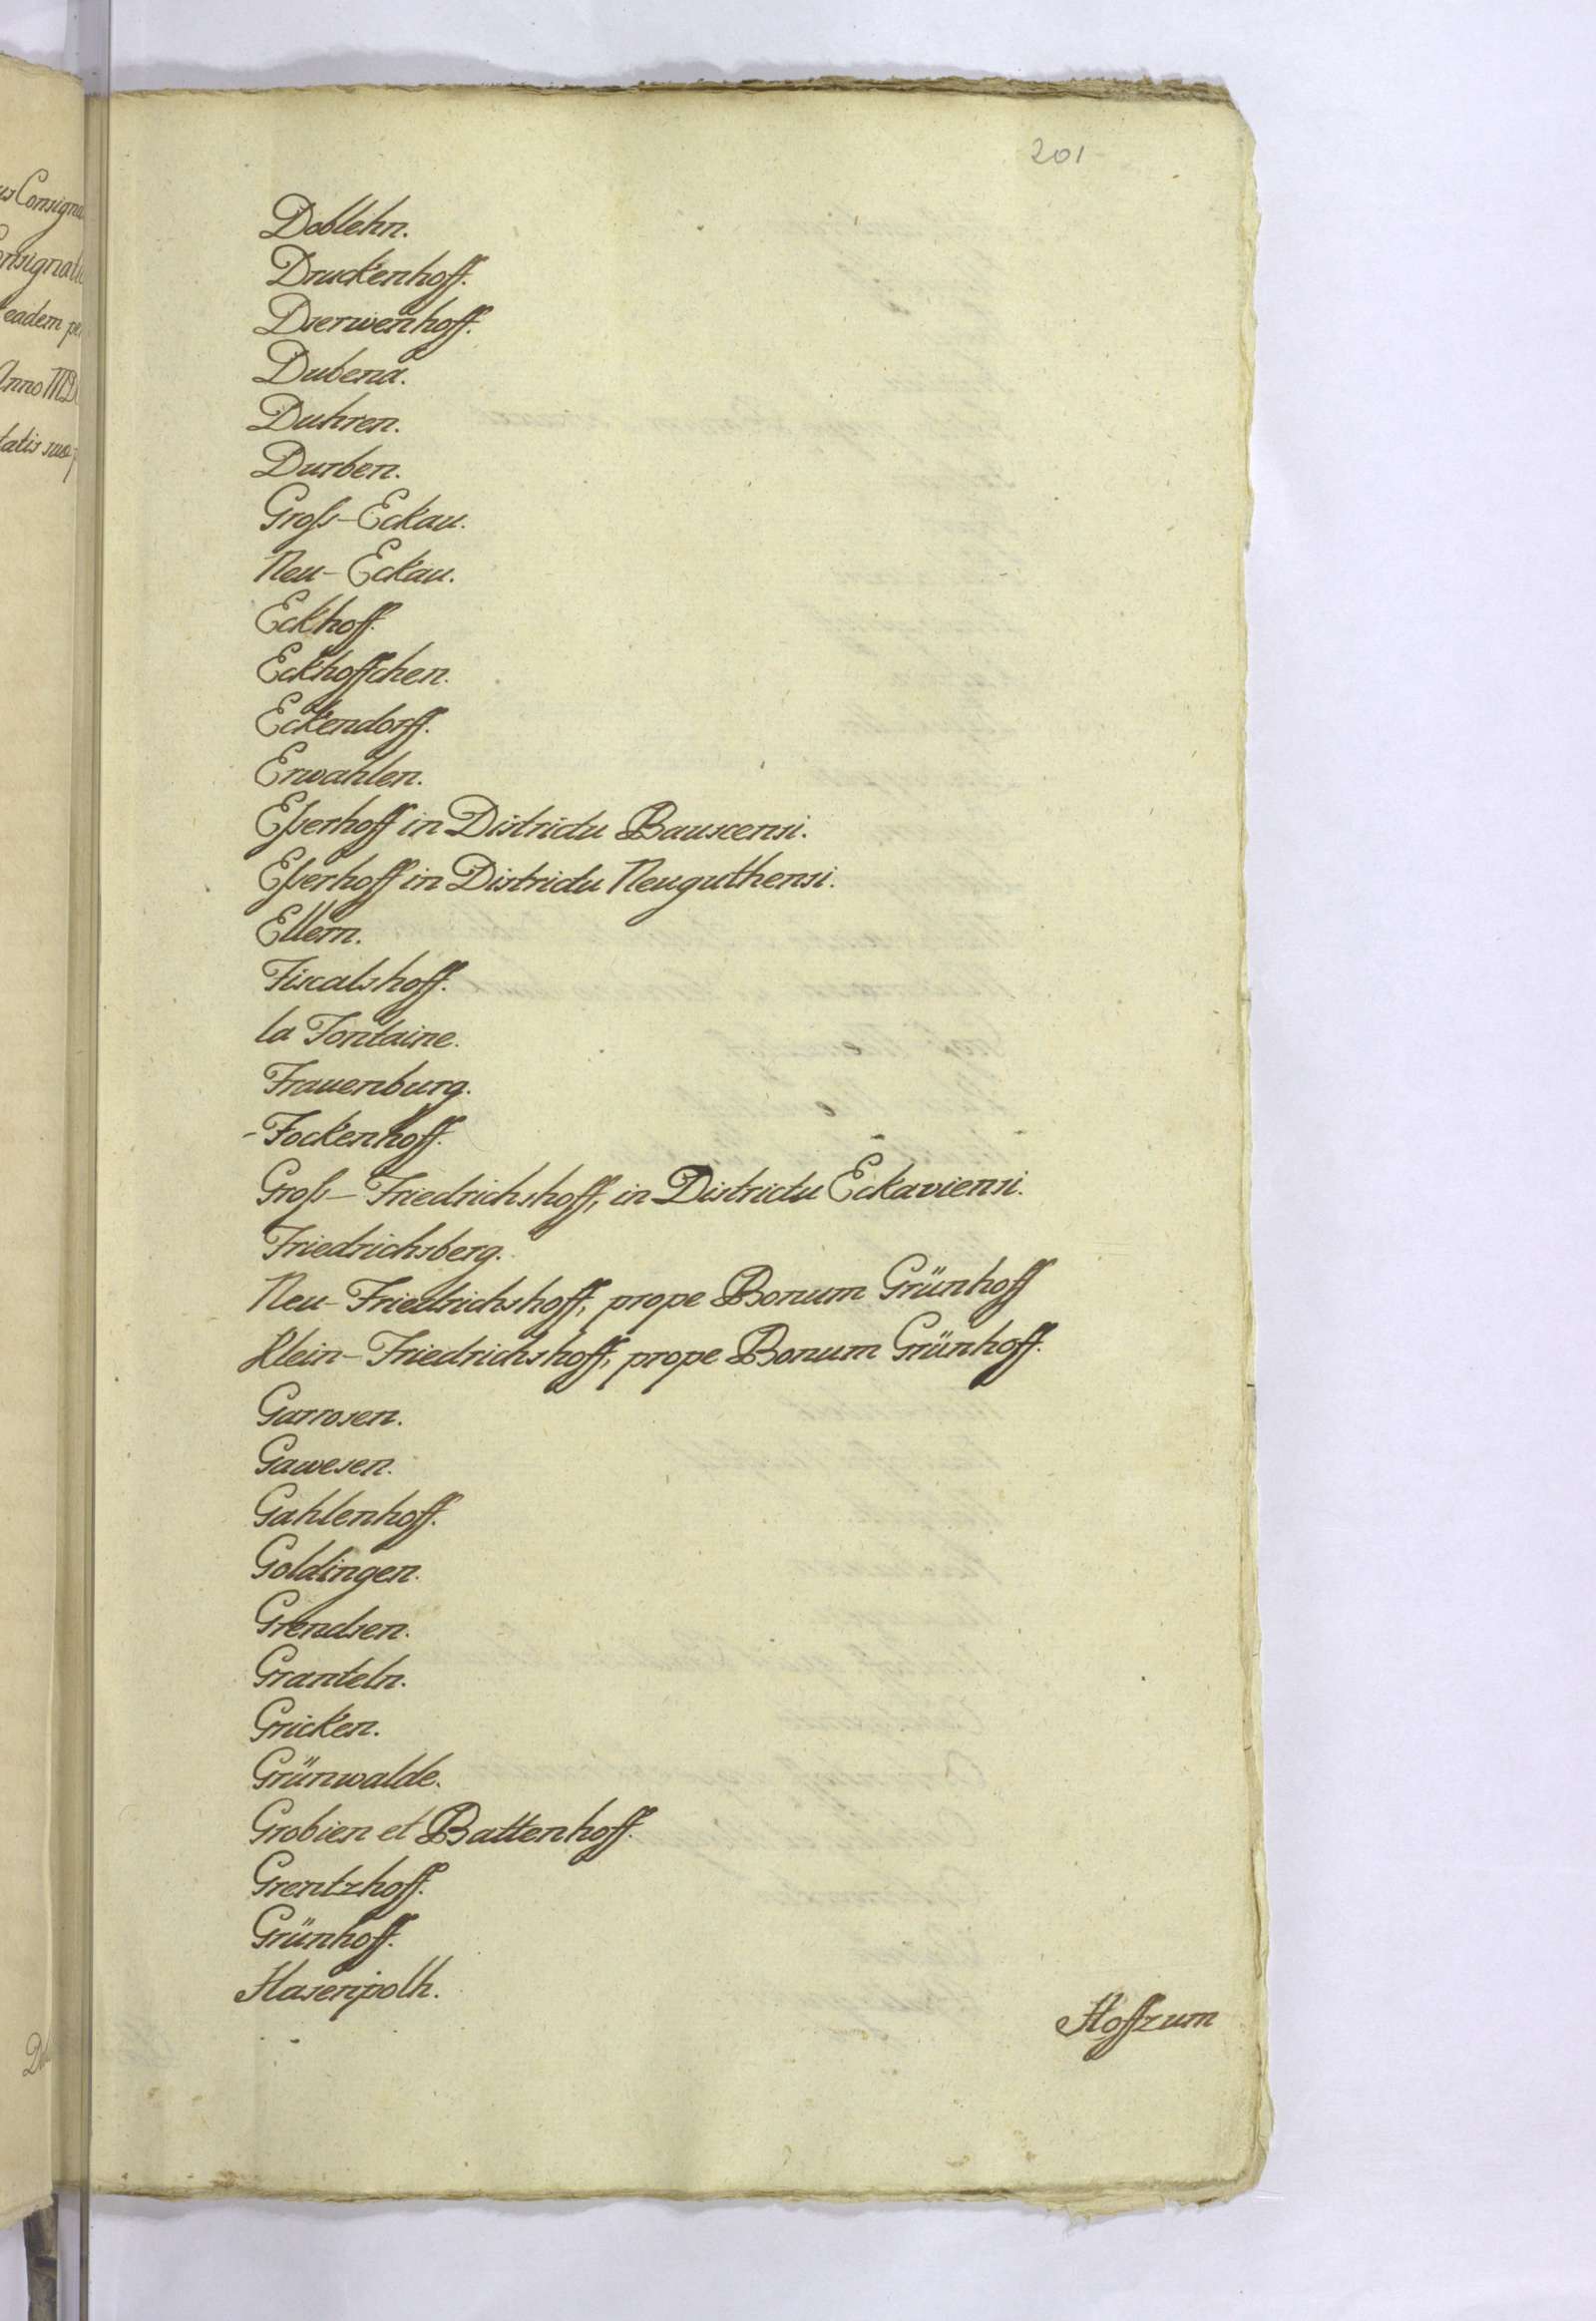 201
Doblehn.
Druckenhoff.
Dserwenhoff.
Dubena.
Duhren.
Durben.
Groß-Eckau.
Neu-Eckau.
Eckhoff.
Eckhoffchen.
Eckendorff.
Erwahlen.
Eßerhoff in Districtu Bauscensi.
Eßerhoff in Districtu Neuguthensi.
Ellern.
Fiscalshoff.
la Fontaine.
Frauenburg.
-Fockenhoff.
Groß-Friedrichshoff, in Districtu Eckaviensi.
Friedrichsberg.
Neu-Friedrichshoff, prope Bonum Grünhoff
Klein-Friedrichshoff, prope Bonum Grünhoff.
Garrosen.
Gawesen.
Gahlenhoff.
Goldingen.
Grendsen.
Granteln.
Gricken.
Grünwalde.
Grobien et Battenhoff.
Grentzhoff.
Grünhoff.
Hasenpoth.
Hoffzum